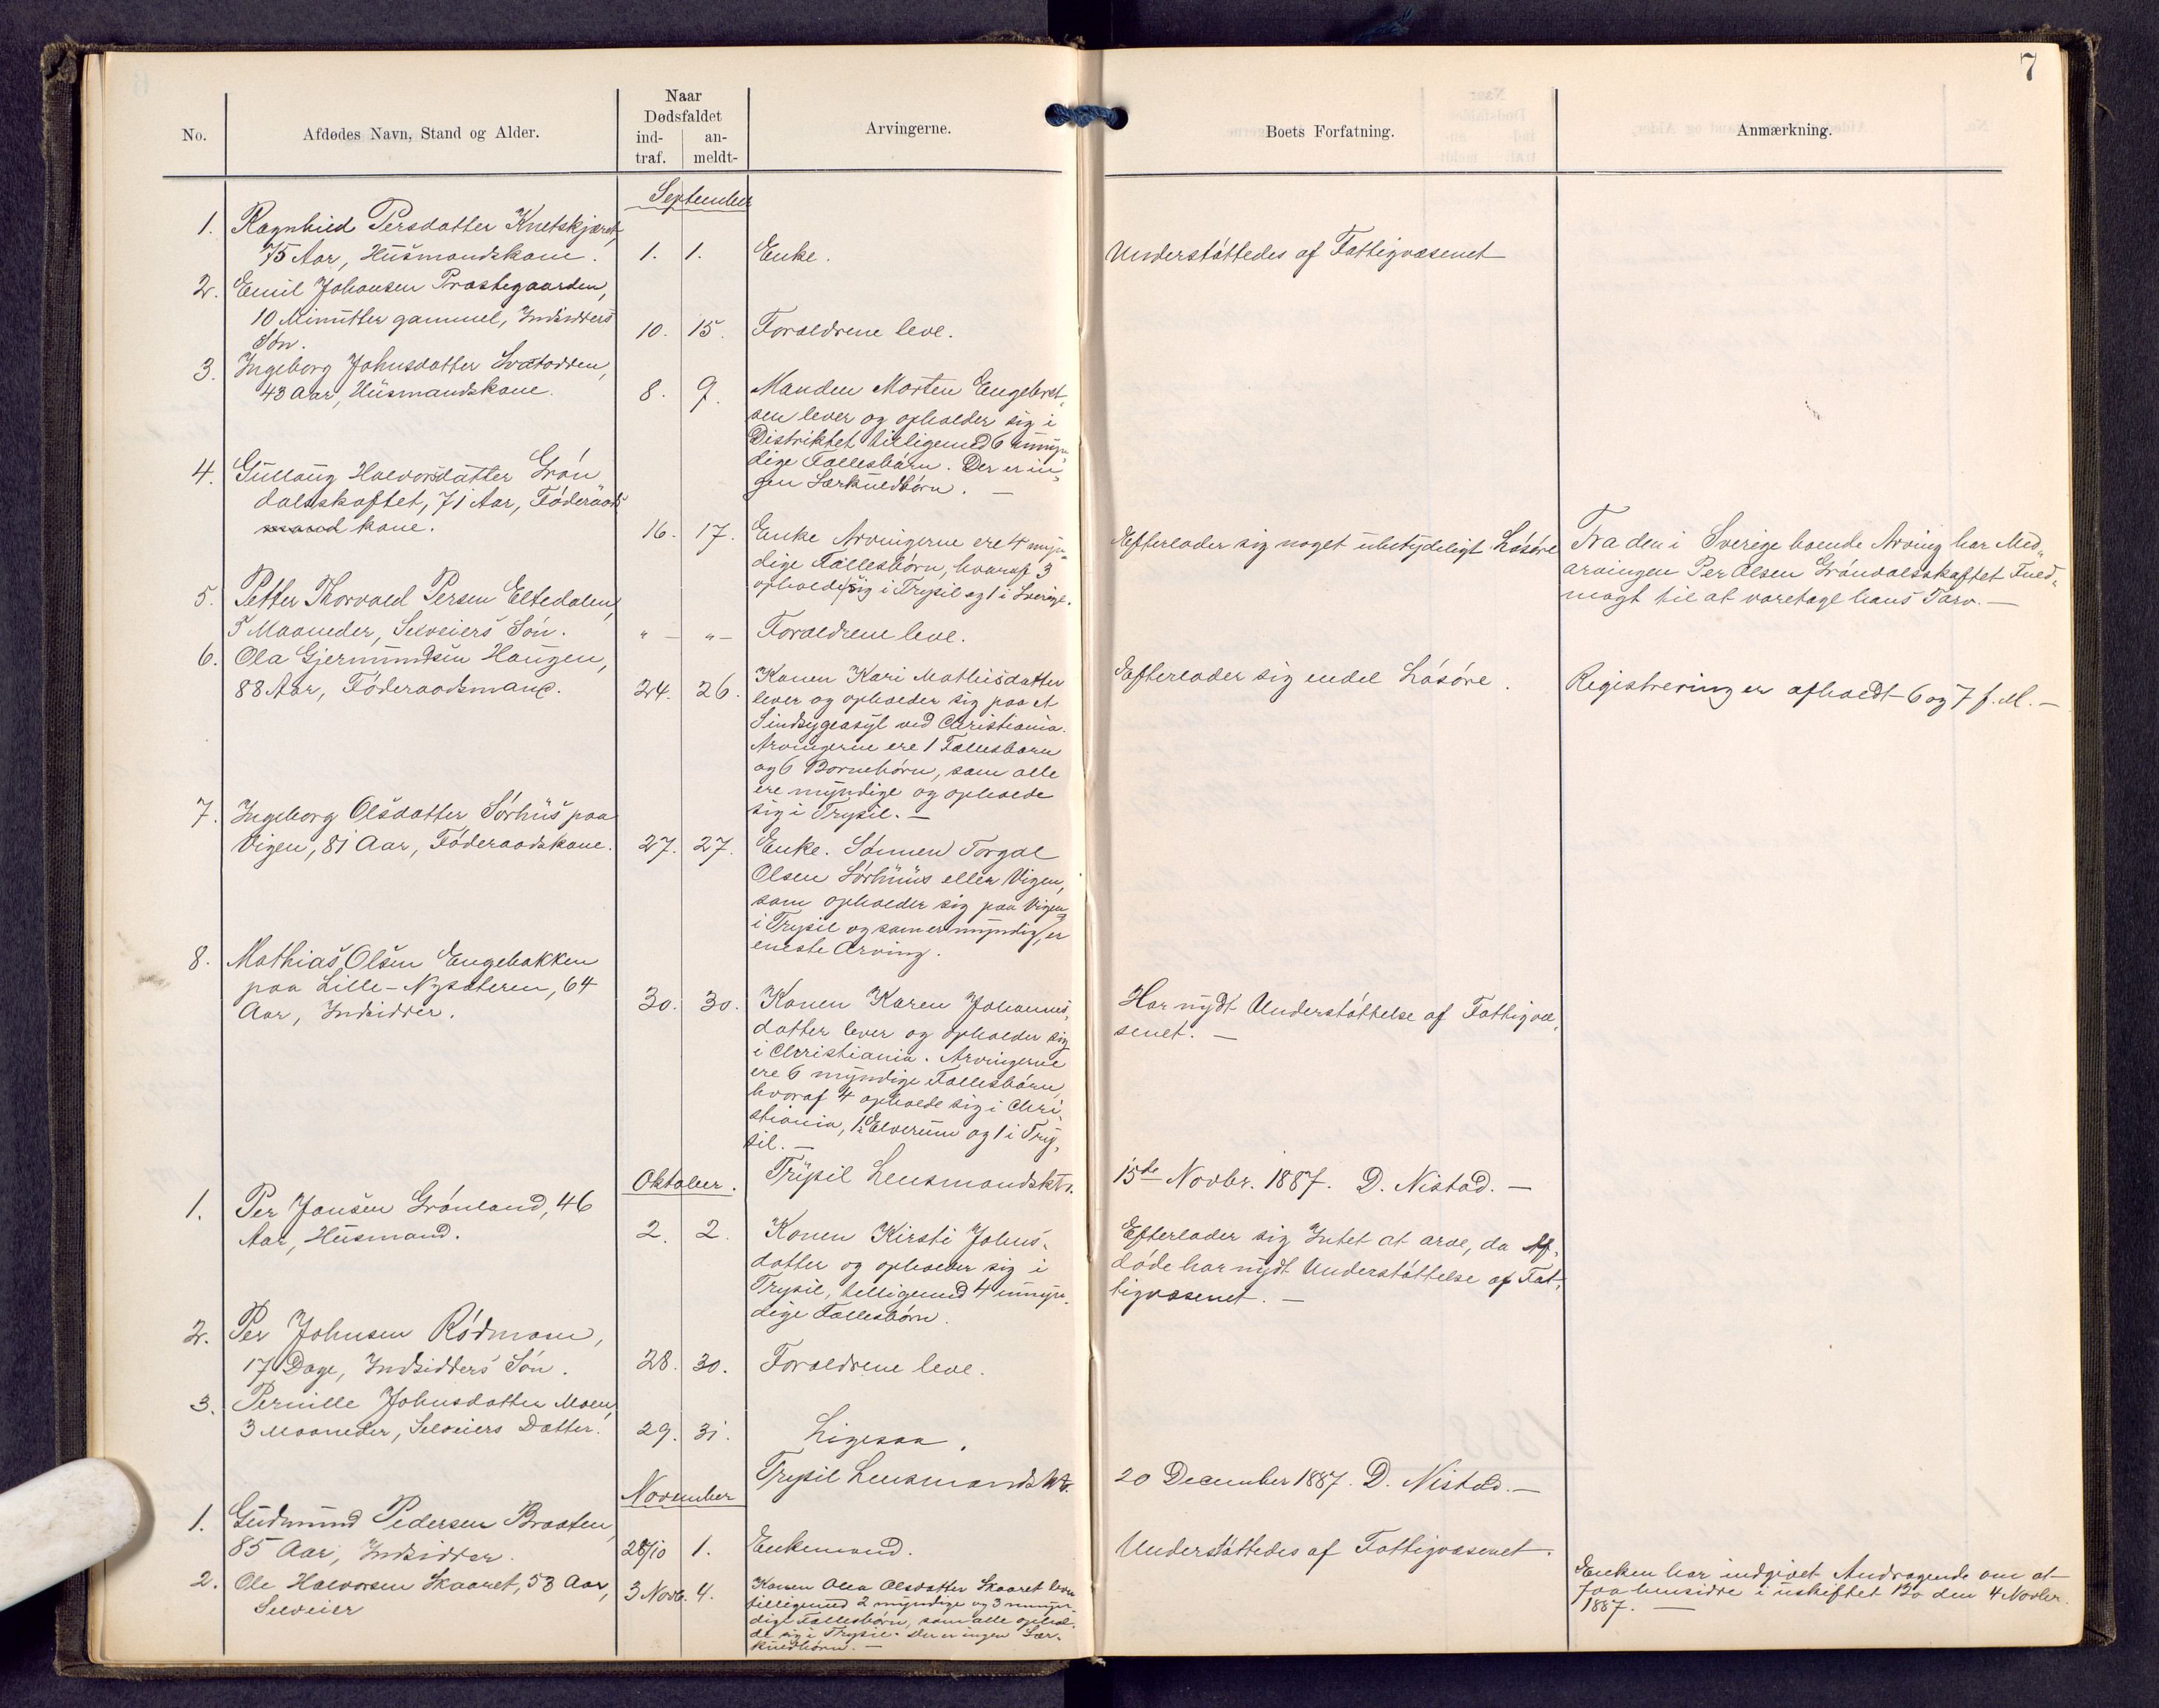 7
No.
Afdødes Navn, Stand og Alder.
Naar
Dødsfaldet
ind-
traf.
an-
meldt-
Arvingerne.
Boets Forfatning.
Anmærkning.
September
1. Ragnhild Persdatter Knetskjæret,
75 Aar, Husmandskone. 1. 1. Enke. Understøttedes af Fattigvæsenet
2. Emil Johansen Præstegaarden,
10 Minutter gammel, Indsidders
Søn. 10. 15. Forældrene leve.
3. Ingeborg Johnsdatter Svatodden,
43 Aar, Husmandskone. 8. 9. Manden Morten Engebret-
sen lever og opholder sig i
Distriktet tilligemed 6 umyn-
dige Fællesbørn. Der er in-
gen Særkuldbørn. —
4. Gullaug Halvorsdatter Grøn
dalsskaftet, 71 Aar, Føderaads
mand kone. 16. 17. Enke Arvingerne ere 4 myn-
dige Fællesbørn, hvoraf 3
opholde sig i Trysil og 1 i Sverige.
Efterlader sig noget ubetydeligt Løsøre
Fra den i Sverige boende Arving har Med-
arvingen Per Olsen Grøndalsskaftet Fuld-
magt til at varetage hans Tarv. —
5. Petter Thorvald Persen Eltedalen,
5 Maaneder, Selveiers Søn. " — " — Forældrene leve.
6. Ola Gjermundsen Haugen,
88 Aar, Føderaadsmand. 24. 26. Konen Kari Mathisdatter
lever og opholder sig paa et
Sindsygeasyl ved Christiania.
Arvingerne ere 1 Fællesbarn
og 6 Børnebørn, som alle
ere myndige og opholde
sig i Trysil. —
Efterlader sig endel Løsøre.
Registrering er afholdt 6 og 7 f. M. —
7. Ingeborg Olsdatter Sørhus paa
Vigen, 81 Aar, Føderaadskone. 27. 27. Enke. Sønnen Torgal
Olsen Sørhuus eller Vigen,
som opholder sig paa Vigen
i Trysil og som er myndig, er
eneste Arving.
8. Mathias Olsen Engebakken
paa Lille-Nysæteren, 64
Aar, Indsidder. 30. 30. Konen Karen Johannes-
datter lever og opholder sig
i Christiania. Arvingerne
ere 6 myndige Fællesbørn,
hvoraf 4 opholde sig i Chri-
stiania, 1 i Elverum og 1 i Try-
sil. —
Har nydt Understøttelse af Fattigvæ-
senet. —
Trysil Lensmandskt. 15de Novbr. 1887. D. Nistad. —
Oktober.
1. Per Jansen Grønland, 46
Aar, Husmand. 2. 2. Konen Kirsti Johns-
datter og opholder sig i
Trysil, tilligemed 4 umyn-
dige Fællesbørn.
Efterlader sig Intet at arve, da Af-
døde har nydt Understøttelse af Fat-
tigvæsenet. —
2. Per Johnsen Rødmosen,
17 Dage, Indsidders Søn. 28. 30. Forældrene leve.
3. Pernille Johnsdatter Moen,
3 Maaneder, Selveiers Datter. 29. 31. Ligesaa.
Trysil Lensmandskt. 20 December 1887. D. Nistad. —
November
1. Gudmund Pedersen Braaten,
85 Aar, Indsidder. 28/10 1. Enkemand. Understøttedes af Fattigvæsenet.
2. Ole Halvorsen Skaaret, 53 Aar,
Selveier 3 Novb. 4. Konen Olea Olsdatter Skaaret lever
tilligemed 2 myndige og 3 umyn-
dige Fællesbørn, som alle ophol-
de sig i Trysil. Der er ingen Sær-
kuldbørn. —
Enken har indgivet Andragende om at
faa hensidde i uskiftet Bo den 4 Novbr.
1887. —